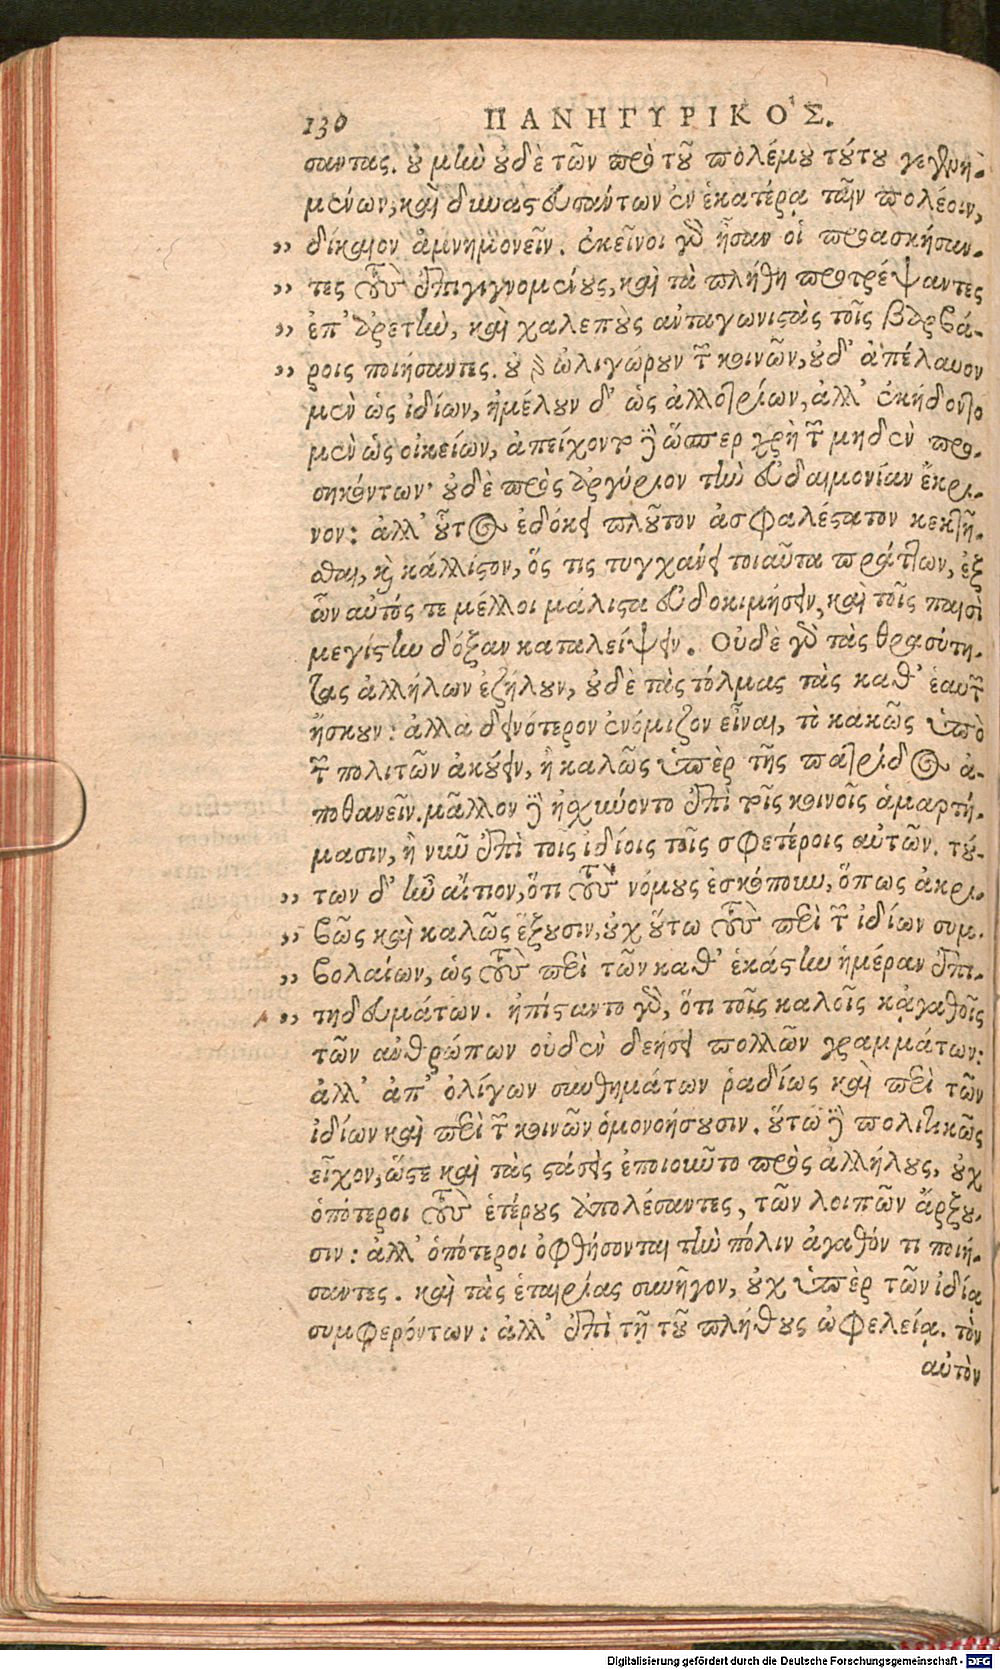 130 ΠΑΝΗΓΥΡΙΚΟ'Σ.
σαντας. οὐ μὴν οὐδὲ τῶν πρὸ τοῦ πολέμου τούτου γεγενη-
μένων, καὶ δυναστευσάντων ἐν ἑκατέρᾳ ταῖν πολέοιν,
„ δίκαιον ἀμνημονεῖν. ἐκεῖνοι γὰρ ἦσαν οἱ προασκήσαν-
„ τες τοὺς ἐπιγιγνομένους, καὶ τὰ πλήθη προτρέψαντες
„ ἐπ' ἀρετὴν, καὶ χαλεποὺς ἀνταγωνιστὰς τοῖς βαρβά-
„ ροις ποιήσαντες. οὐ γὰρ ὠλιγώρουν τῶν κοινῶν, οὐδ' ἀπέλαυον
μὲν ὡς ἰδίων, ἠμέλουν δ' ὡς ἀλλοτρίων, ἀλλ' ἐκήδοντο
μὲν ὡς οἰκείων, ἀπείχοντο δὲ ὥσπερ χρὴ τῶν μηδὲν προ-
σηκόντων· οὐδὲ πρὸς ἀργύριον τὴν εὐδαιμονίαν ἔκρι-
νον: ἀλλ' οὗτος ἐδόκει πλοῦτον ἀσφαλέστατον κεκτῆ-
σθαι, καὶ κάλλιστον, ὅς τις τυγχάνει τοιαῦτα πράττων, ἐξ
ὧν αὐτός τε μέλλοι μάλιστα εὐδοκιμήσειν, καὶ τοῖς παισὶ
μεγίστην δόξαν καταλείψειν. Οὐδὲ γὰρ τὰς θρασύτη-
τας ἀλλήλων ἐζήλουν, οὐδὲ τὰς τόλμας τὰς καθ' ἑαυτῶν
ἤσκουν: ἀλλὰ δεινότερον ἐνόμιζον εἶναι, τὸ κακῶς ὑπὸ
τῶν πολιτῶν ἀκούειν, ἢ καλῶς ὑπὲρ τῆς πατρίδος ἀ-
ποθανεῖν. μᾶλλον δὲ ᾐσχύοντο ἐπὶ τοῖς κοινοῖς ἁμαρτή-
μασιν, ἢ νῦν ἐπὶ τοῖς ἰδίοις τοῖς σφετέροις αὐτῶν. τού-
„ των δ' ἦν αἴτιον, ὅτι τοὺς νόμους ἐσκόπουν, ὅπως ἀκρι-
„ βῶς καὶ καλῶς ἕξουσιν, οὐχ οὕτω τοὺς περὶ τῶν ἰδίων συμ-
„ βολαίων, ὡς τοὺς περὶ τῶν καθ' ἑκάστην ἡμέραν ἐπι-
„ τηδευμάτων. ἠπίσταντο γὰρ, ὅτι τοῖς καλοῖς κἀγαθοῖς
τῶν ἀνθρώπων οὐδὲν δεήσει πολλῶν γραμμάτων:
ἀλλ' ἀπ' ὀλίγων συνθημάτων ῥαδίως καὶ περὶ τῶν
ἰδίων καὶ περὶ τῶν κοινῶν ὁμονοήσουσιν. οὕτω δὲ πολιτικῶς
εἶχον, ὥστε καὶ τὰς στάσεις ἐποιοῦντο πρὸς ἀλλήλους, οὐχ
ὁπότεροι τοὺς ἑτέρους ἀπολέσαντες, τῶν λοιπῶν ἄρξου-
σιν: ἀλλ' ὁπότεροι ὀφθήσονται τὴν πόλιν ἀγαθόν τι ποιή-
σαντες. καὶ τὰς ἑταιρίας συνῆγον, οὐχ ὑπὲρ τῶν ἰδίᾳ
συμφερόντων: ἀλλ' ἐπὶ τῇ τοῦ πλήθους ὠφελείᾳ. τὸν
αὐτὸν
Digitalisierung gefördert durch die Deutsche Forschungsgemeinschaft - DFG